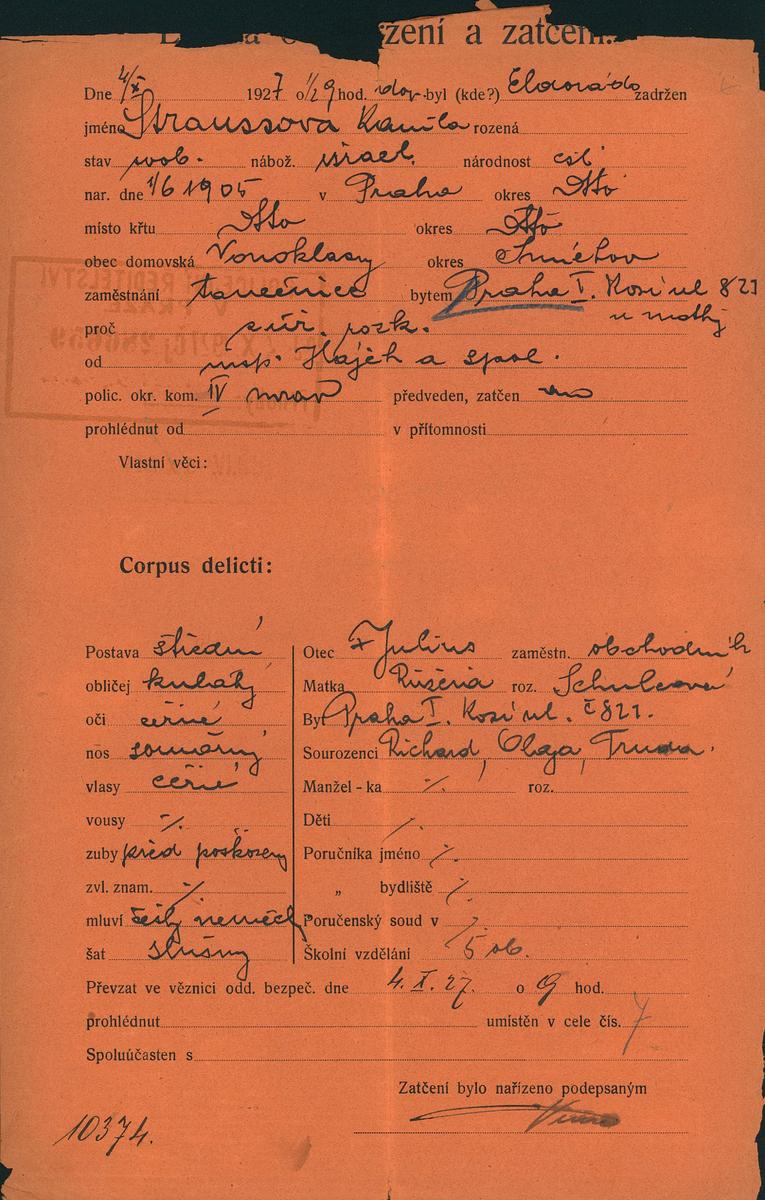 zení a zatčení.
Dne 4/X 1927 o 1/2 9 hod. dop. byl (kde?) Eldorádo zadržen
jméno Straussova Kamila rozená
stav svob. nábož. israel. národnost čsl
nar. dne 1/6 1905 v Praha okres Dtto
místo křtu Dtto okres Dtto
obec domovská Vonoklasy okres Smíchov
zaměstnání tanečnice bytem Praha I. Kosí ul 821
u matky
proč rozk.
od insp. Hájek a spol.
polic. okr. kom. IV mrav předveden, zatčen
prohlédnut od v přítomnosti
Vlastní věci:
Corpus delicti:
Postava střední
obličej kulatý
oči černé
nos souměrný
vlasy černé
vousy ./.
zuby před poškozeny
zvl. znam. ./.
mluví česky německy
šat slušný
Otec Julius zaměstn. obchodník
Matka Růžena roz. Schulzová
Byt Praha I. Kosí ul. č 821.
Sourozenci Richard, Olga, Truda.
Manžel-ka ./. roz.
Děti ./.
Poručníka jméno ./.
„ bydliště ./.
Poručenský soud v ./.
Školní vzdělání 5 ob.
Převzat ve věznici odd. bezpeč. dne 4. X. 27. o 9 hod.
prohlédnut umístěn v cele čís. 7
Spoluúčasten s
Zatčení bylo nařízeno podepsaným
10374.